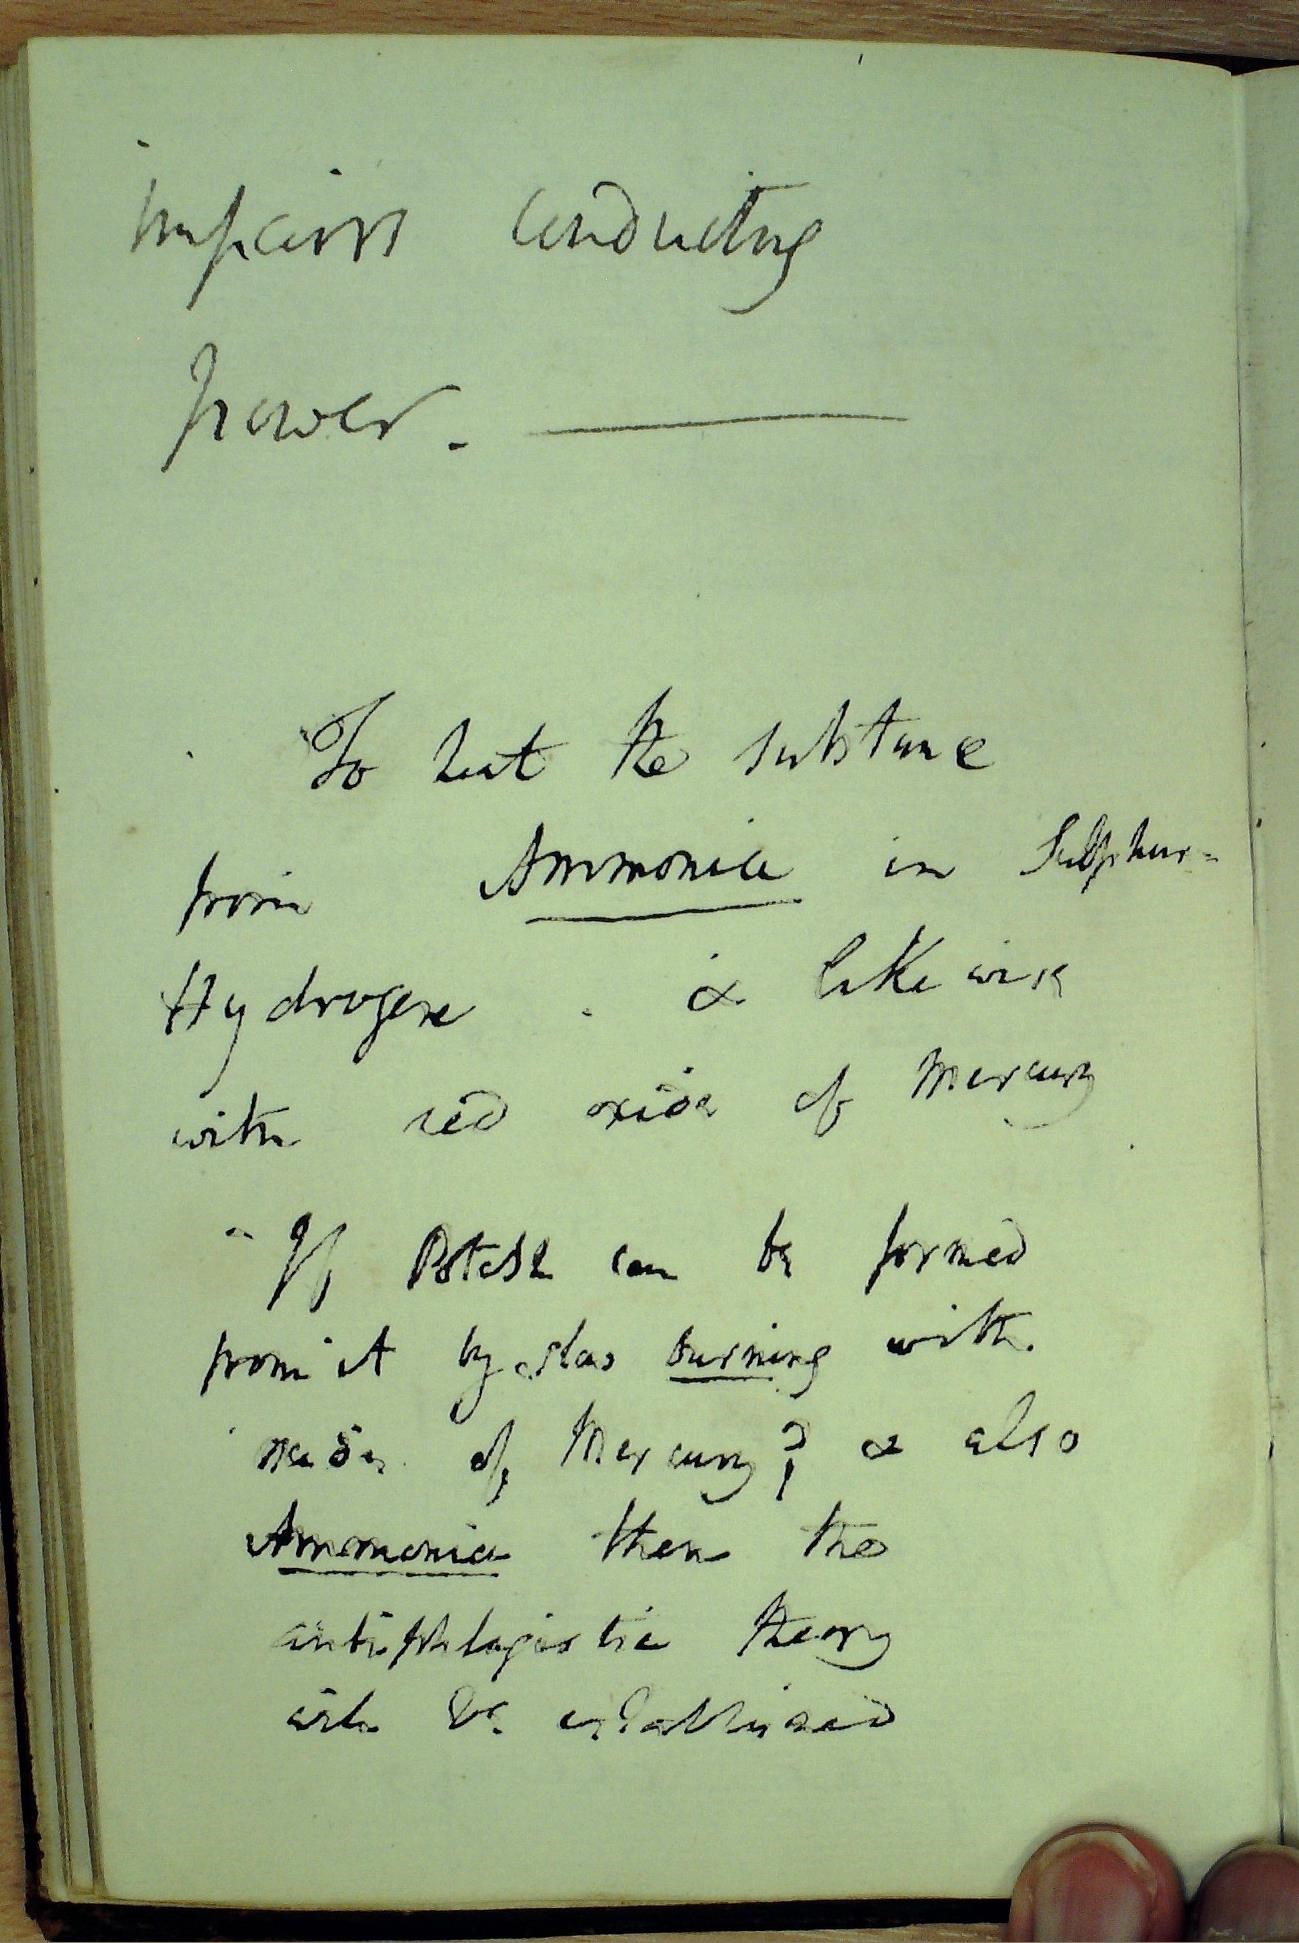 impairs conducting
power. ———
To heat the substance
from Ammonia in Sulphur-
Hydrogene . & likewise
with red oxide of Mercury
If Potash can be formed
from it by slow burning with
oxide of Mercury? & also
Ammonia then the
antiphlogistic theory
will be established